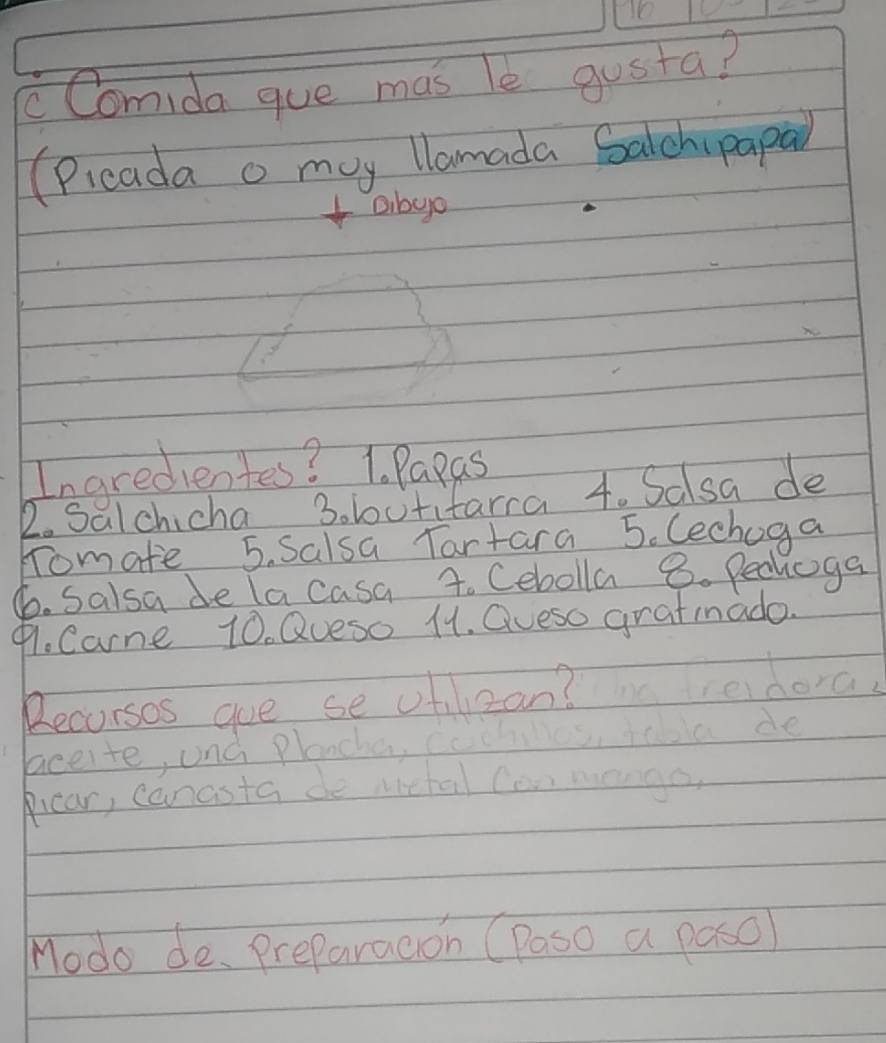 ¿Comida que más le gusta?
(Picada o muy llamada Salchipapa)
+ Dibujo
Ingredientes? 1.Papas
2. Salchicha 3.butifarra 4. Salsa de
Tomate 5.Salsa Tartara 5.Lechuga
6. Salsa de la casa 7. Cebolla 8. Pechuga
9.Carne 10.Queso 11. Queso gratinado.
Recursos que se utilizan? freidora,
aceite, una plancha, cuchillos, tabla de
picar, canasta de metal con mango,
Modo de Preparación (Paso a paso)